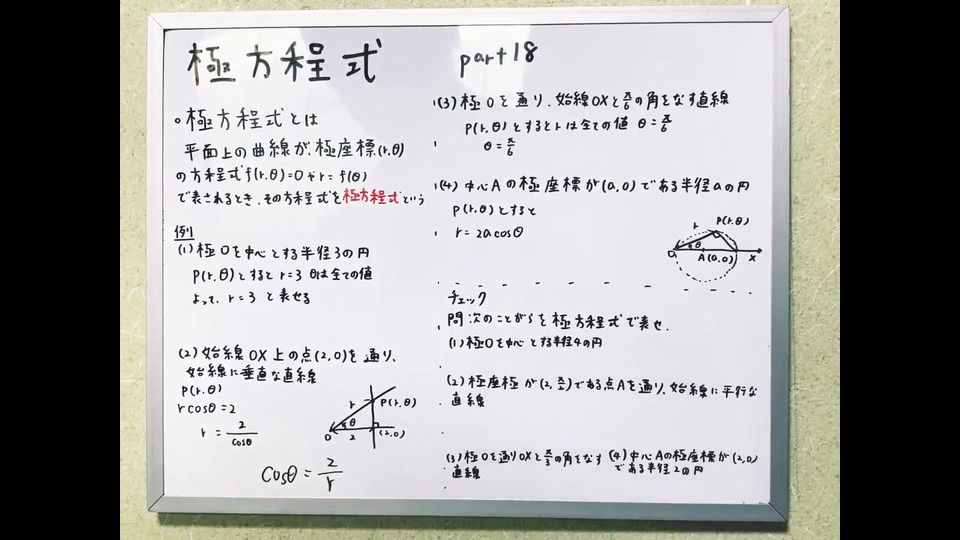 極方程式
part18
極方程式とは
平面上の曲線が、極座標(r,θ)
の方程式f(r,θ)=0やr=f(θ)
で表されるとき、その方程式を極方程式という
例
(1)極Oを中心とする半径3の円
P(r,θ)とするとr=3 θは全ての値
よって、r=3と表せる
(2)始線OX上の点(2,0)を通り、
始線に垂直な直線
P(r,θ)
rcosθ=2
r=2/cosθ
r
P(r,θ)
θ
O
2
(2,0)
cosθ=2/r
(3)極Oを通り、始線OXとπ/6の角をなす直線
P(r,θ)とするとrは全ての値 θ=π/6
θ=π/6
(4)中心Aの極座標が(a,0)である半径aの円
P(r,θ)とすると
r=2acosθ
r
P(r,θ)
θ
O
A(a,0)
x
チェック
問 次のことがらを極方程式で表せ.
(1)極Oを中心とする半径4の円
(2)極座極が(2,π/2)である点Aを通り、始線に平行な
直線
(3)極Oを通りOXとπ/3の角をなす
直線
(4)中心Aの極座標が(2,0)
である半径2の円